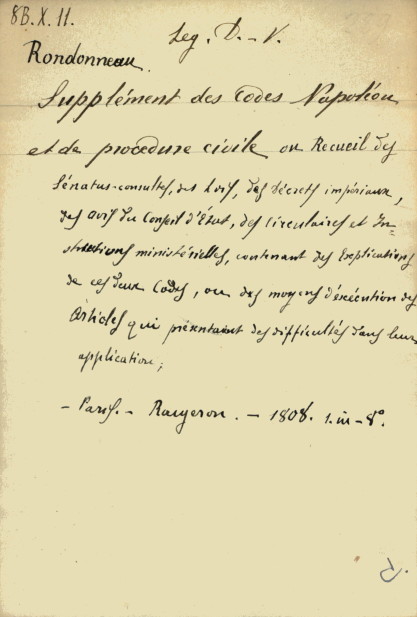 8B.X.11.
Leg. D.-V.
Rondonneau.
Supplément des Codes Napoléon
et de procédure civile ou Recueil des
Sénatus-consultes, des Lois, des décrets impériaux,
des avis du Conseil d'État, des circulaires et In=
structions ministérielles, contenant des Explications
de ces deux Codes, ou des moyens d'exécution des
Articles qui présentaient des difficultés dans leur
application;
- Paris. - Rougeron. - 1808. 1. in-8°.